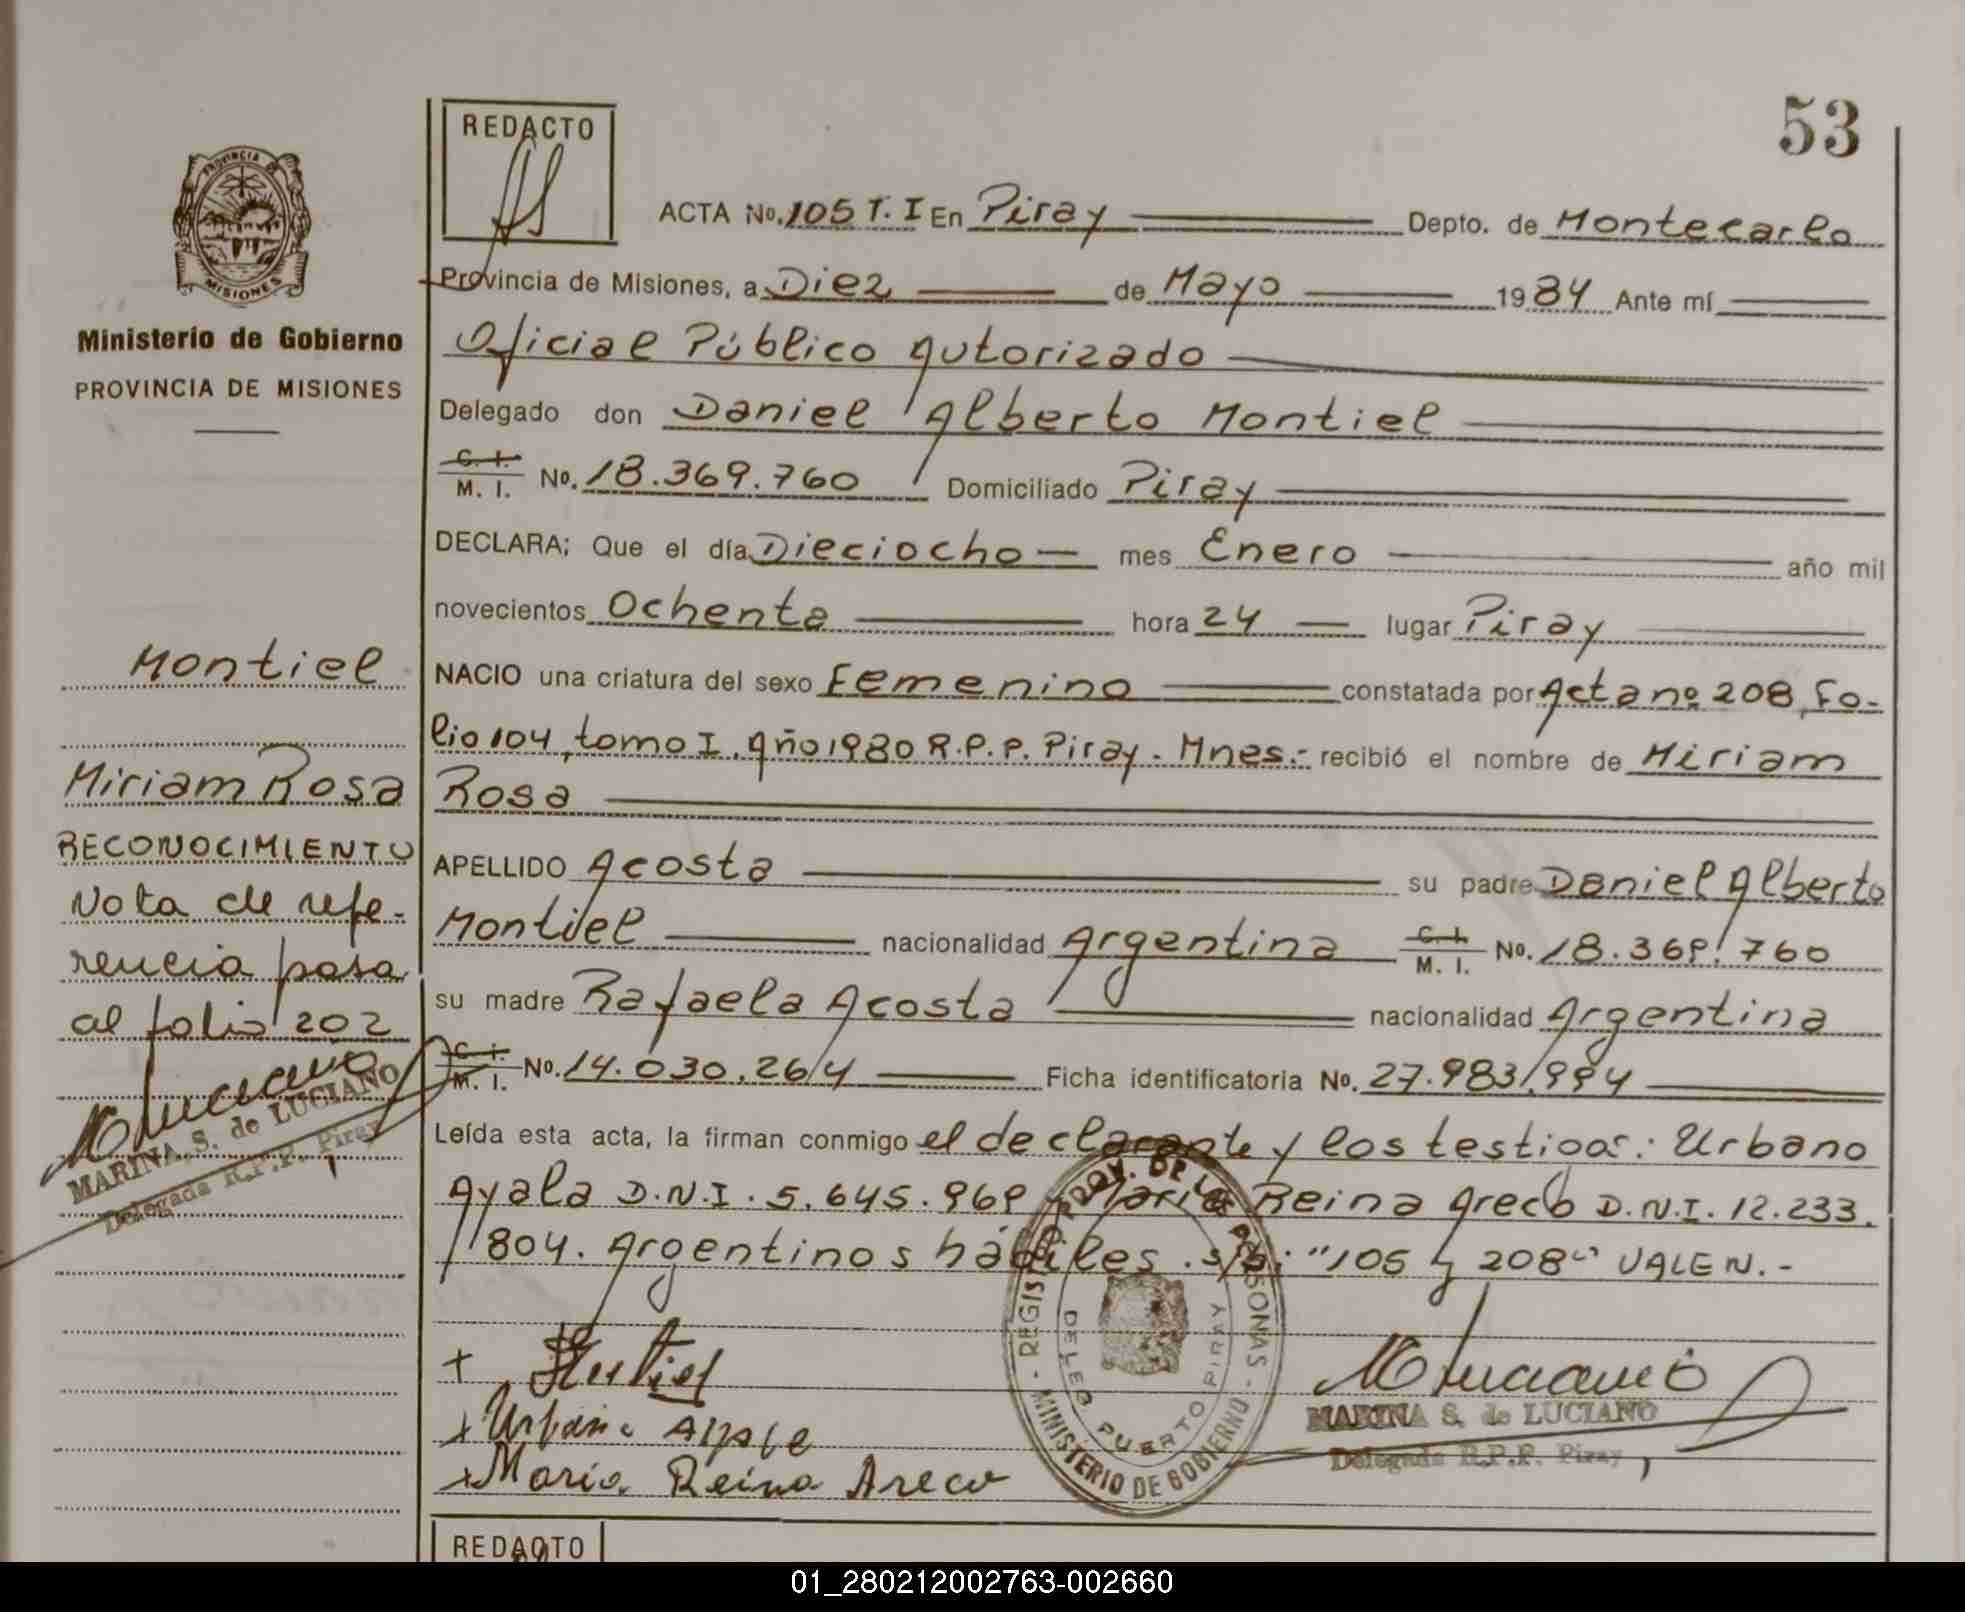 53
REDACTO
ACTA No. 105 T. I En Piray Depto. de Montecarlo
Provincia de Misiones, a Diez de Mayo 1984 Ante mí
Oficial Público Autorizado
Delegado don Daniel Alberto Montiel
C. I. M. I. No. 18.369.760 Domiciliado Piray
DECLARA; Que el día Dieciocho mes Enero año mil
novecientos Ochenta hora 24 lugar Piray
NACIO una criatura del sexo Femenino constatada por Acta nº 208, Fo-
lio 104, tomo I. Año 1980 R.P.P. Piray. Mnes.- recibió el nombre de Miriam
Rosa
APELLIDO Acosta su padre Daniel Alberto
Montiel nacionalidad Argentina C. I. M. I. No. 18.369.760
su madre Rafaela Acosta nacionalidad Argentina
C. I. M. I. No. 14.030.264 Ficha identificatoria No. 27.983/994
Leída esta acta, la firman conmigo el declarante y los testigos: Urbano
Ayala D.N.I. 5.645.969 y Maria Reina Areco D.N.I. 12.233.
804. Argentinos hábiles. s/b: "105 y 208" VALEN.-
+ Montiel
+ Urbano Ayala
+ Maria Reina Areco
M Luciano
MARINA S. de LUCIANO
Delegada R.P.P. Piray
REGISTRO PROV. DE LAS PERSONAS
MINISTERIO DE GOBIERNO
DELEG PUERTO PIRAY
PROVINCIA DE
MISIONES
Ministerio de Gobierno
PROVINCIA DE MISIONES
Montiel
Miriam Rosa
RECONOCIMIENTO
Nota de refe-
rencia pasa
al folio 202
M Luciano
MARINA S. de LUCIANO
Delegada R.P.P. Piray
REDACTO
01_280212002763-002660